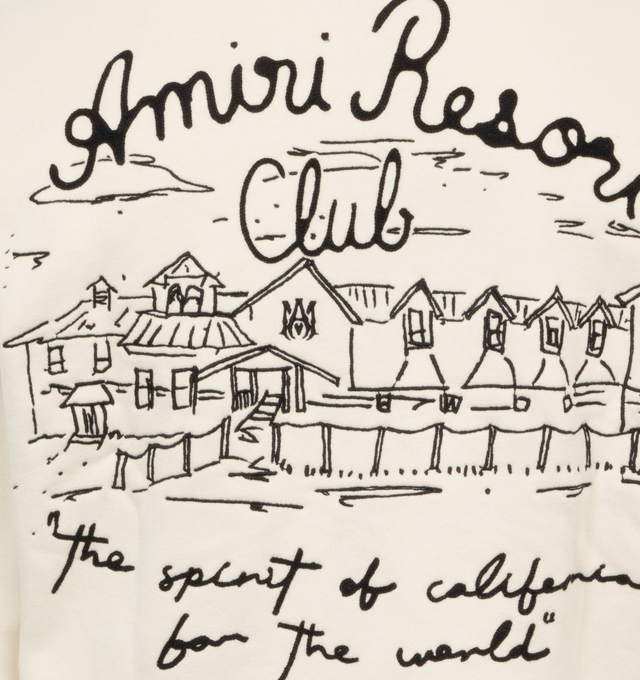 Amiri Resort
Club
"the spirit of california
for the world"